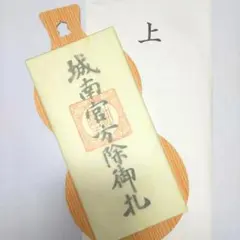 城南宮方除御札
上